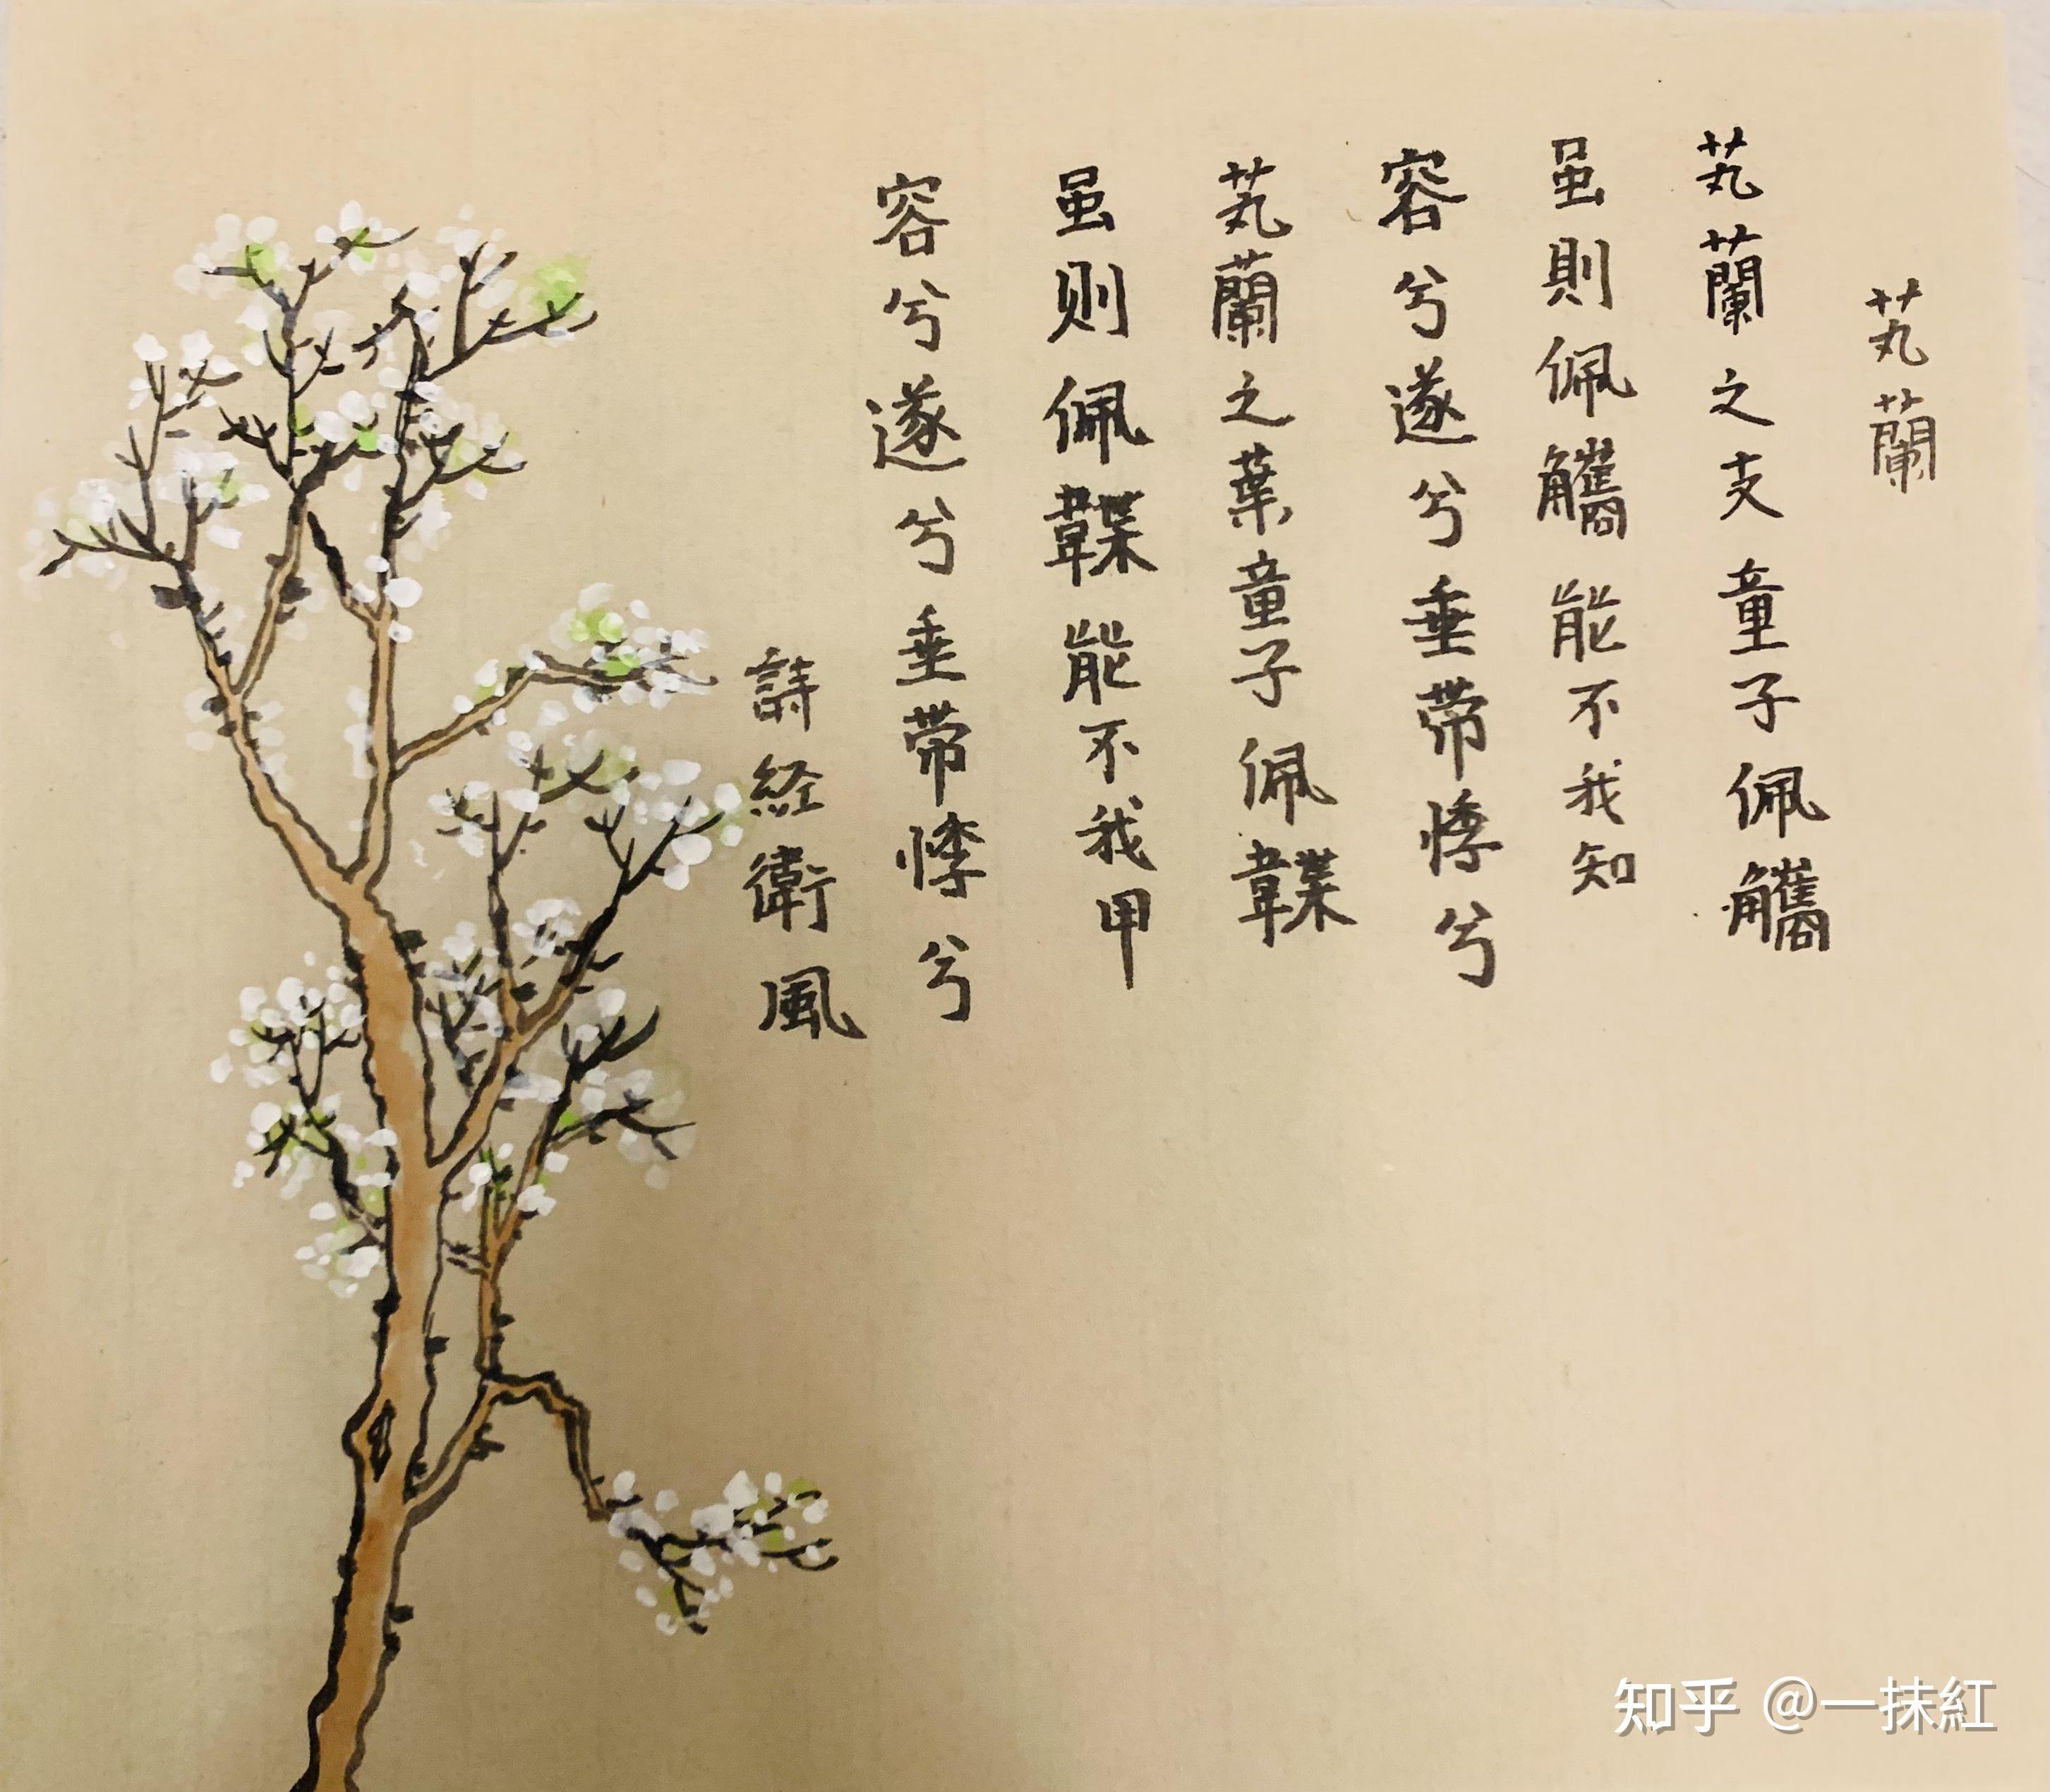 芄蘭
芄蘭之支童子佩觿
虽則佩觿能不我知
容兮遂兮垂带悸兮
芄蘭之葉童子佩韘
虽则佩韘能不我甲
容兮遂兮垂带悸兮
詩経衛風
知乎 @一抹紅